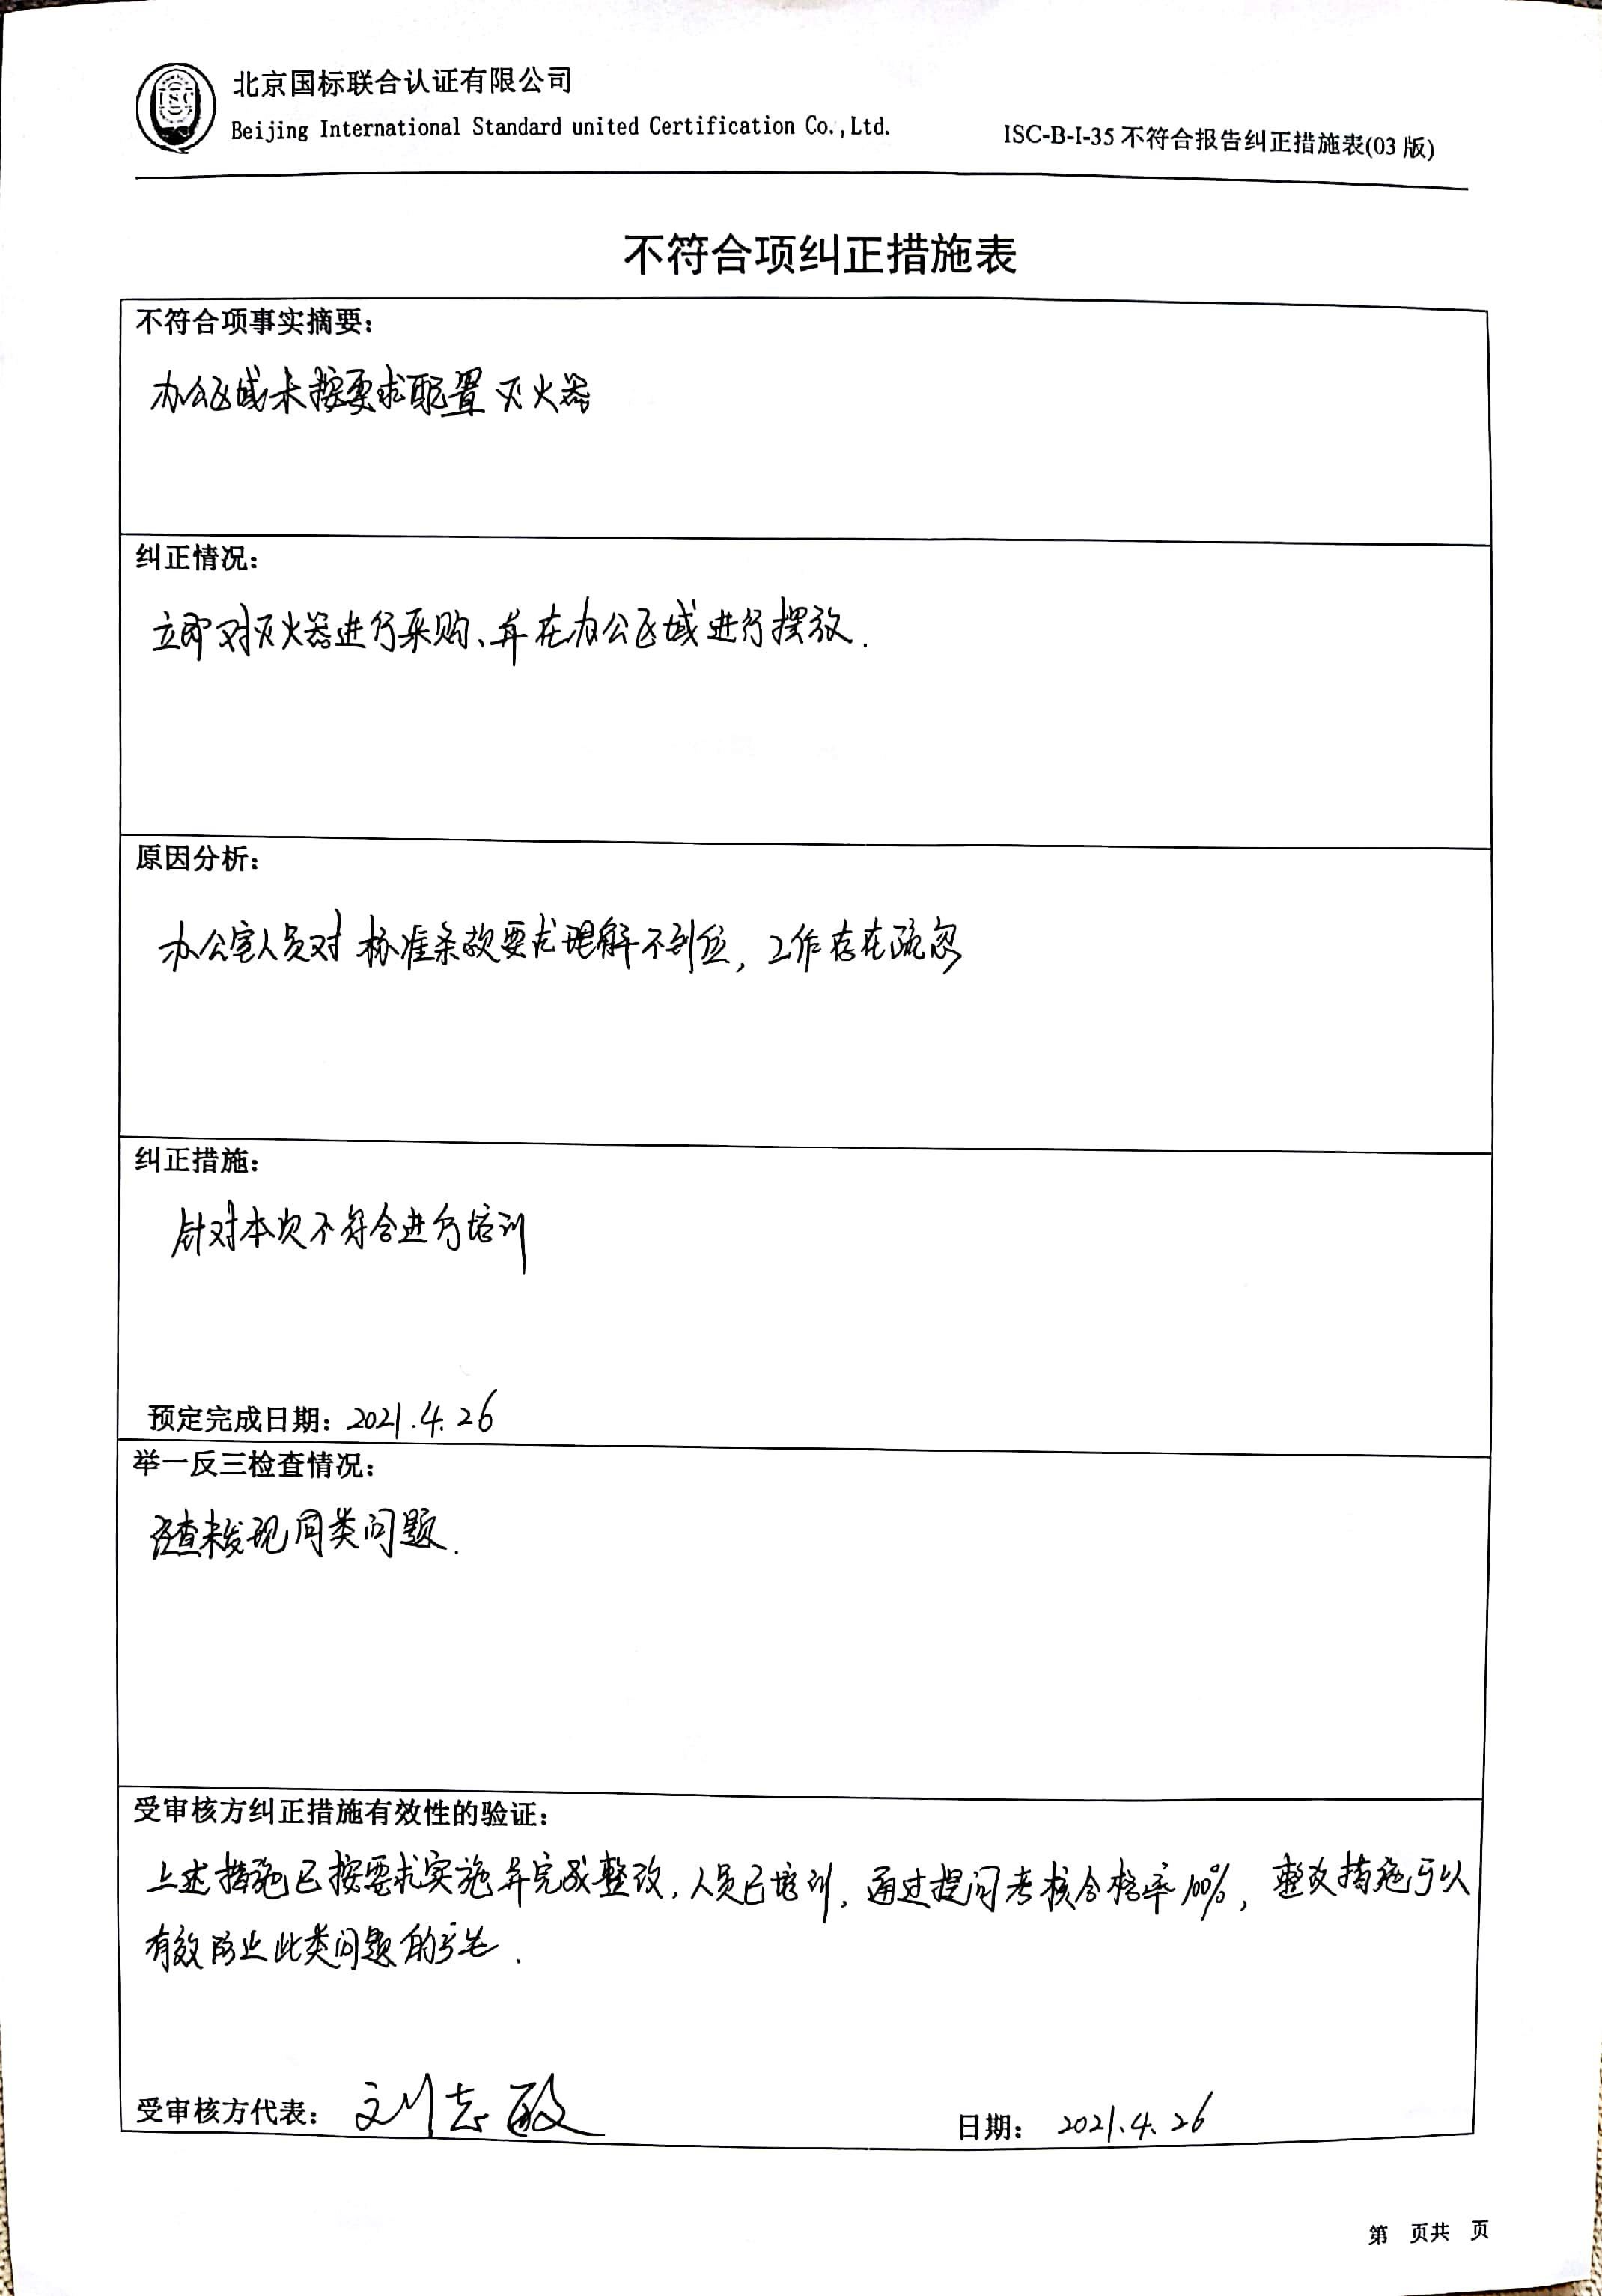 ISC
北京国标联合认证有限公司
Beijing International Standard united Certification Co.,Ltd.
ISC-B-I-35 不符合报告纠正措施表(03 版)
不符合项纠正措施表
不符合项事实摘要：
办公区域未按要求配置灭火器
纠正情况：
立即对灭火器进行采购、并在办公区域进行摆放.
原因分析：
办公室人员对标准条款要求理解不到位，工作存在疏忽
纠正措施：
针对本次不符合进行培训
预定完成日期：2021.4.26
举一反三检查情况：
查未发现同类问题.
受审核方纠正措施有效性的验证：
上述措施已按要求实施并完成整改，人员已培训，通过提问考核合格率100%，整改措施可以
有效防止此类问题的产生.
受审核方代表：刘志敏 日期：2021.4.26
第 页共 页